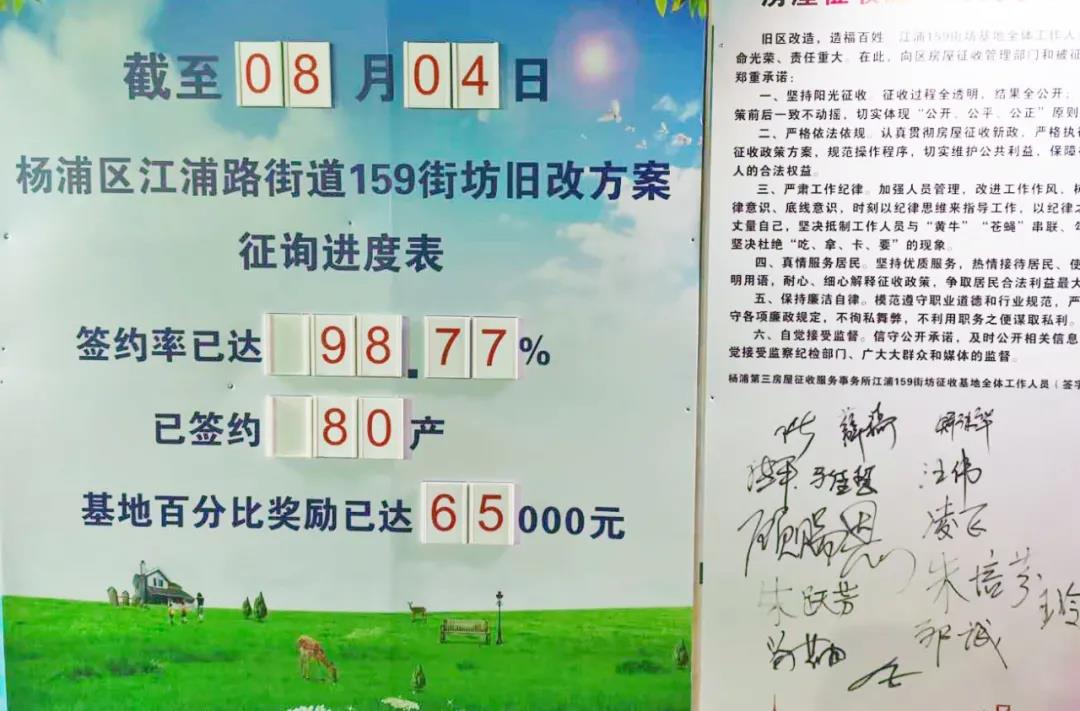 截至08月04日
杨浦区江浦路街道159街坊旧改方案
征询进度表
签约率已达98.77%
已签约80产
基地百分比奖励已达65000元
旧区改造，造福百姓 江浦159街坊基地全体工作人
命光荣、责任重大。在此，向区房屋征收管理部门和被征
郑重承诺：
一、坚持阳光征收。征收过程全透明，结果全公开；
策前后一致不动摇，切实体现“公开、公平、公正”原则
二、严格依法依规。认真贯彻房屋征收新政，严格执
征收政策方案，规范操作程序，切实维护公共利益，保障
人的合法权益。
三、严肃工作纪律。加强人员管理，改进工作作风，
律意识、底线意识，时刻以纪律思维来指导工作，以纪律之
丈量自己，坚决抵制工作人员与“黄牛”“苍蝇”串联、
坚决杜绝“吃、拿、卡、要”的现象。
四、真情服务居民。坚持优质服务，热情接待居民、使
明用语，耐心、细心解释征收政策，争取居民合法利益最大
五、保持廉洁自律。模范遵守职业道德和行业规范，严
守各项廉政规定，不徇私舞弊，不利用职务之便谋取私利。
六、自觉接受监督。信守公开承诺，及时公开相关信息
觉接受监察纪检部门、广大大群众和媒体的监督。
杨浦第三房屋征收服务事务所江浦159街坊征收基地全体工作人员（签字
汪伟
凌飞
朱跃芳 朱培芬
邓诚